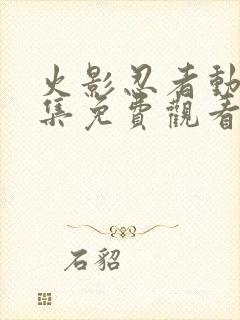 火影忍者動
集免費觀看
石貂